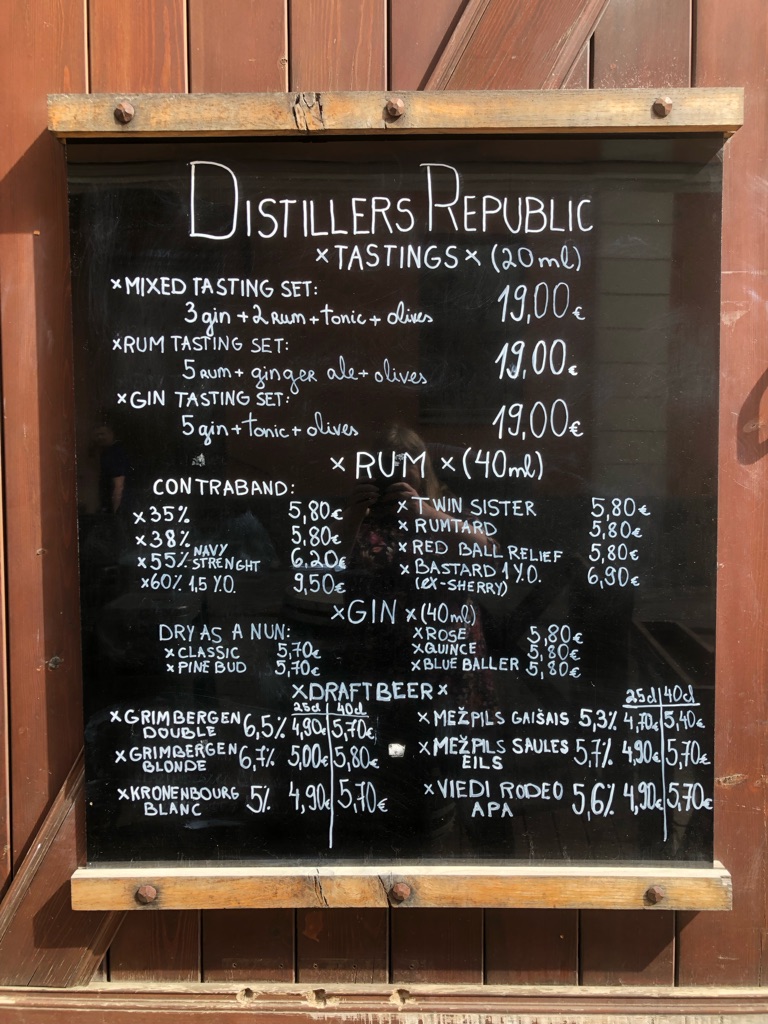 DISTILLERS REPUBLIC
×TASTINGS× (20ml)
×MIXED TASTING SET:
3 gin + 2 RUM + tonic + olives 19,00€
×RUM TASTING SET:
5 RUM + ginger ale + olives 19,00€
×GIN TASTING SET:
5 gin + tonic + olives 19,00€
×RUM×(40ml)
CONTRABAND:
×35% 5,80€
×38% 5,80€
×55% NAVY STRENGHT 6,20€
×60% 1,5 Y.O. 9,50€
×TWIN SISTER 5,80€
×RUMTARD 5,80€
×RED BALL RELIEF 5,80€
×BASTARD 1 Y.O. 6,90€
(EX-SHERRY)
×GIN×(40ml)
DRY AS A NUN:
×CLASSIC 5,70€
×PINE BUD 5,70€
×ROSE 5,80€
×QUINCE 5,80€
×BLUE BALLER 5,80€
×DRAFT BEER×
25cl | 40cl
×GRIMBERGEN DOUBLE 6,5% 4,90€ 5,70€
×GRIMBERGEN BLONDE 6,7% 5,00€ 5,80€
×KRONENBOURG BLANC 5% 4,90€ 5,70€
25cl | 40cl
×MEŽPILS GAIŠAIS 5,3% 4,70€ 5,40€
×MEŽPILS SAULES EILS 5,7% 4,90€ 5,70€
×VIEDI RODEO APA 5,6% 4,90€ 5,70€